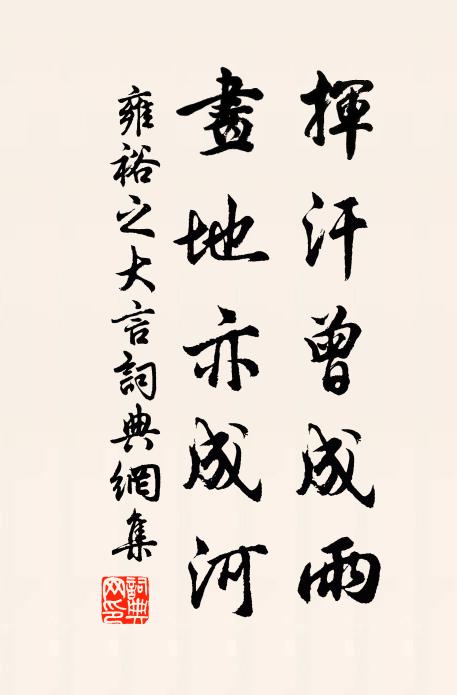 揮汗曾成雨
畫地亦成河
雍裕之大言詞典網集
詞典網印